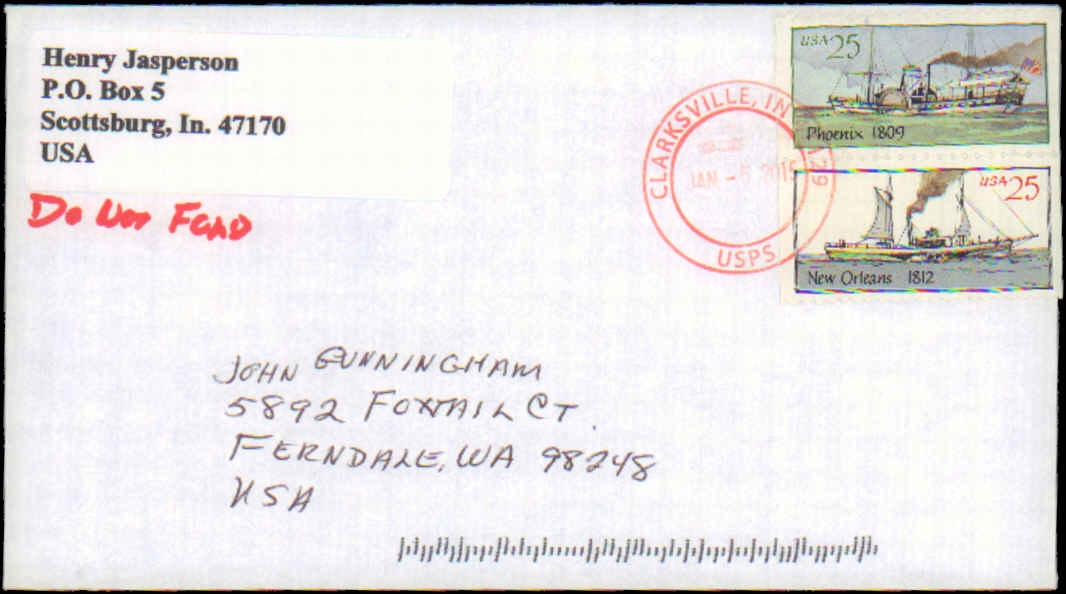 Henry Jasperson
P.O. Box 5
Scottsburg, In. 47170
USA
DO NOT
USA 25
Phoenix 1809
CLARKSVILLE, IN
JAN - 5 2015
USPS
USA 25
New Orleans 1812
JOHN CUNNINGHAM
5892 FOXTAIL CT.
FERNDALE, WA 98248
USA